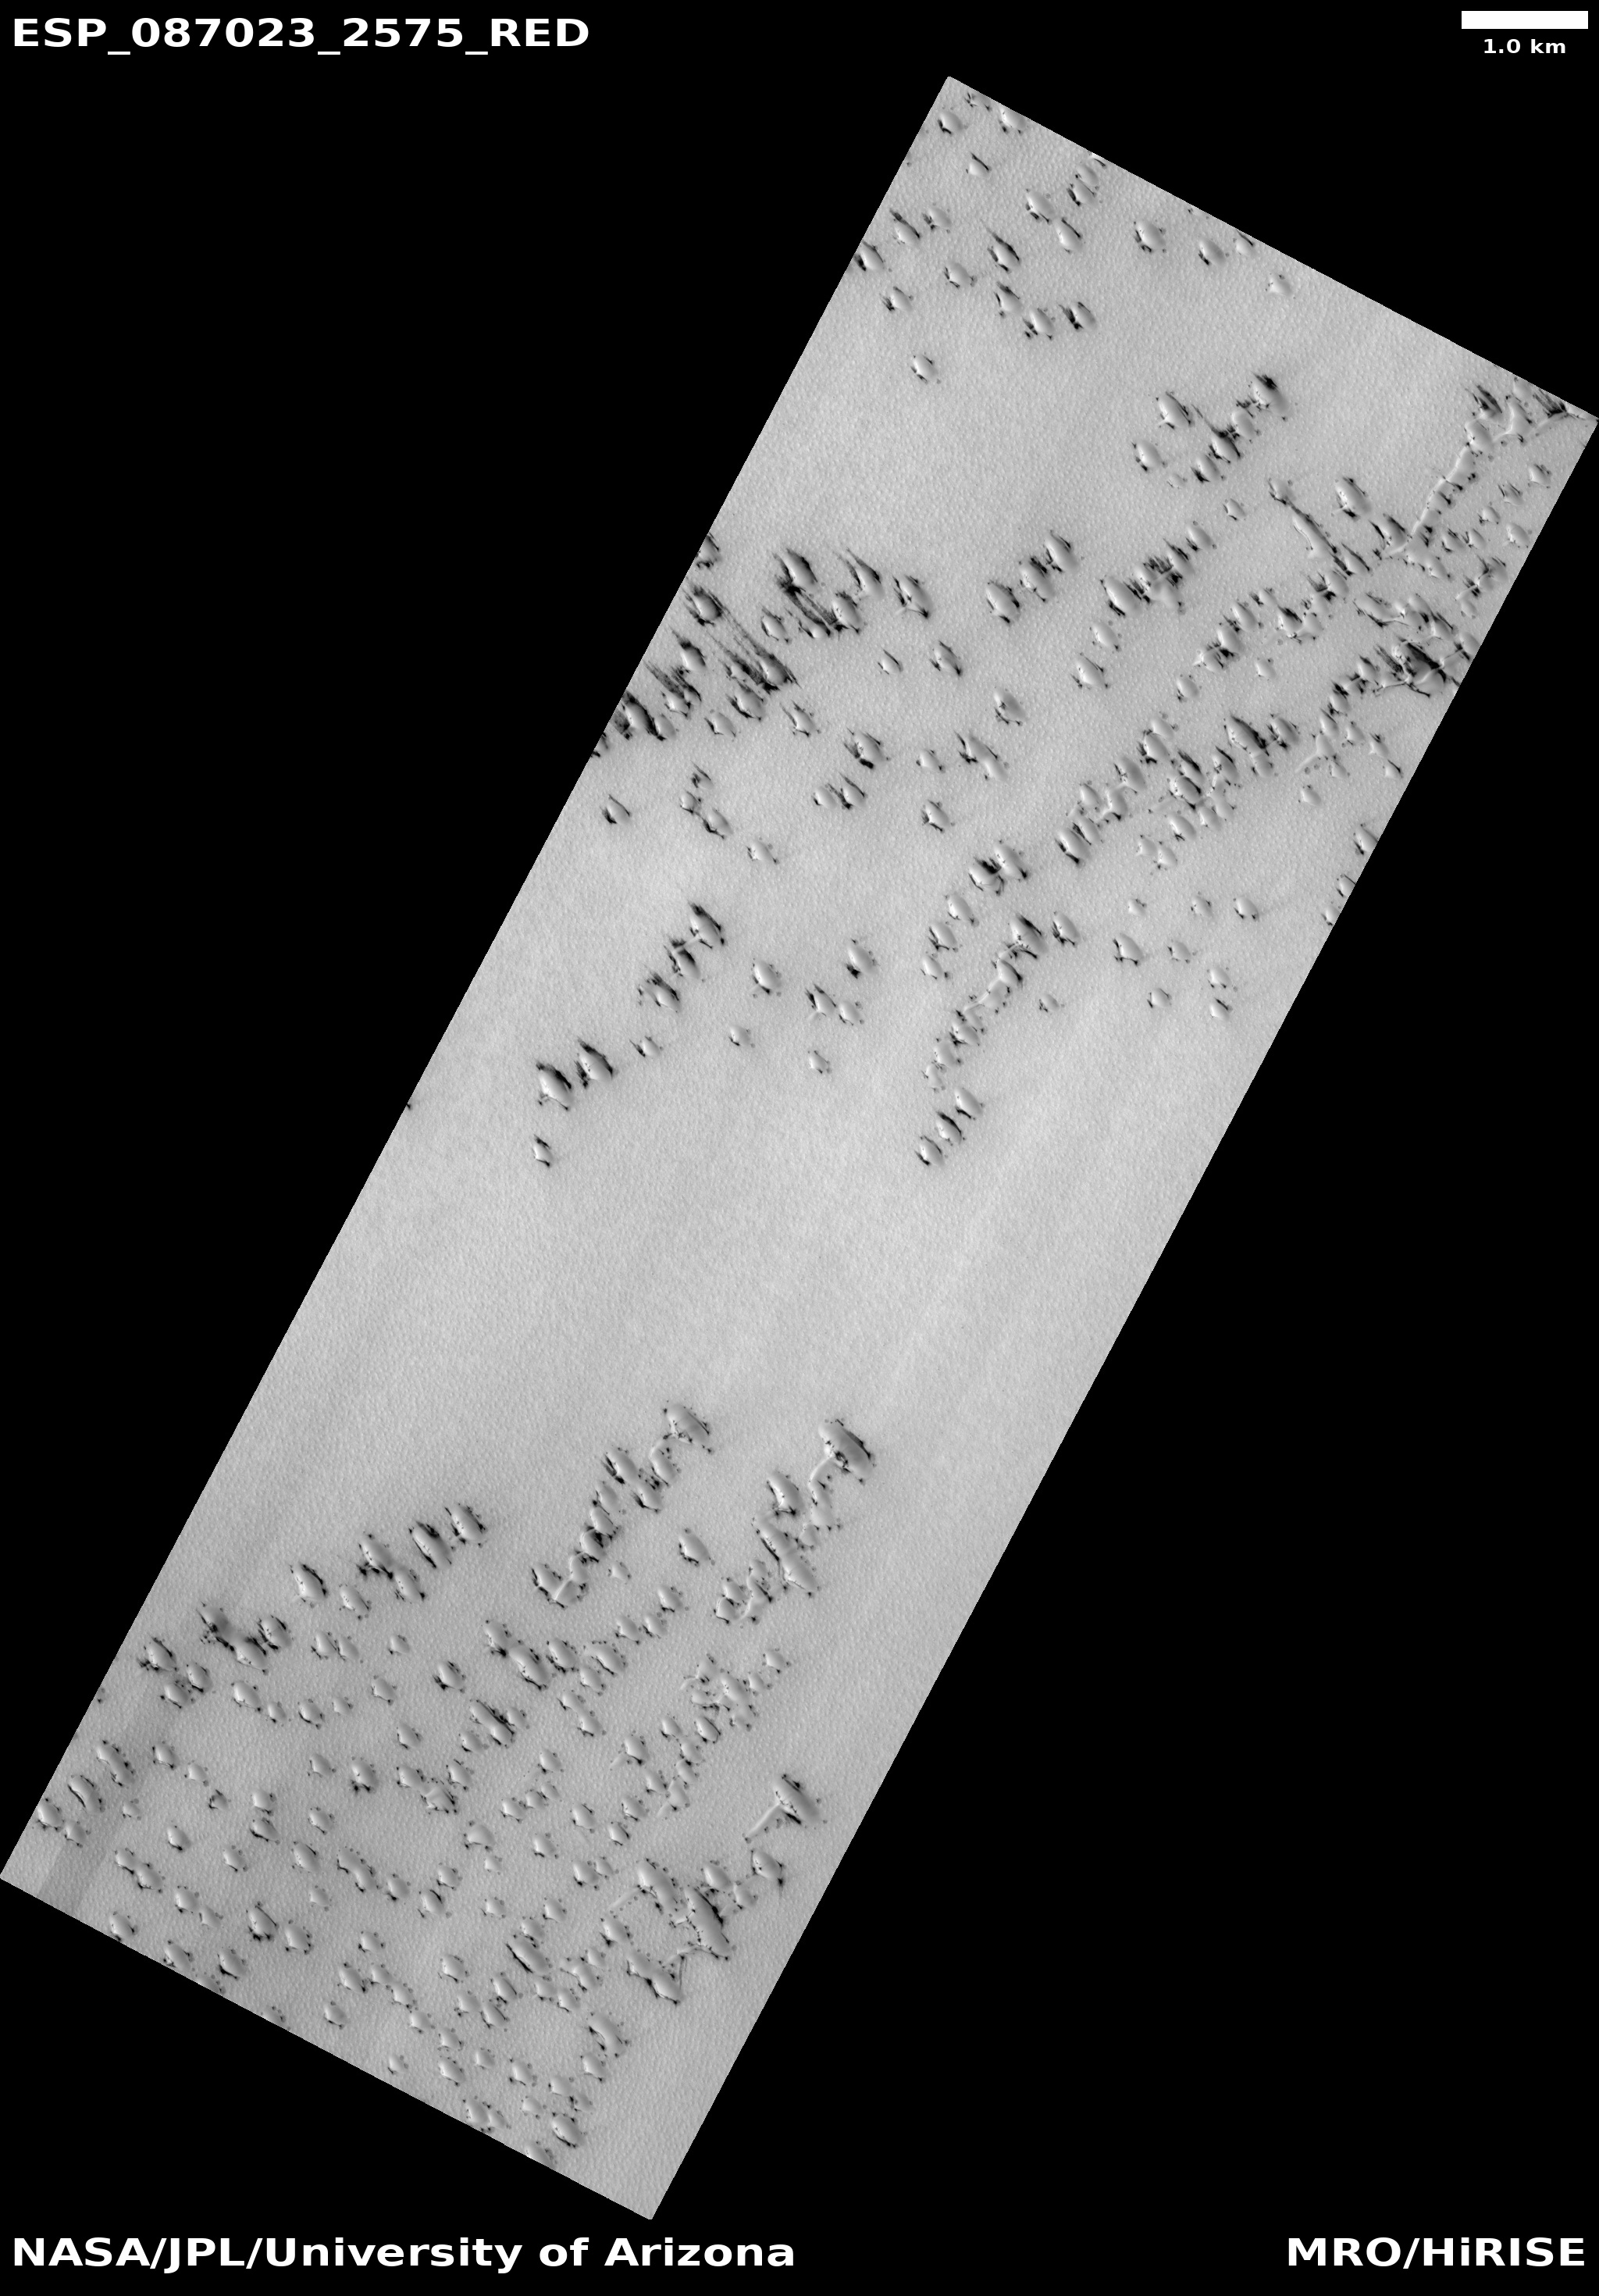 ESP_087023_2575_RED
1.0 km
NASA/JPL/University of Arizona
MRO/HiRISE